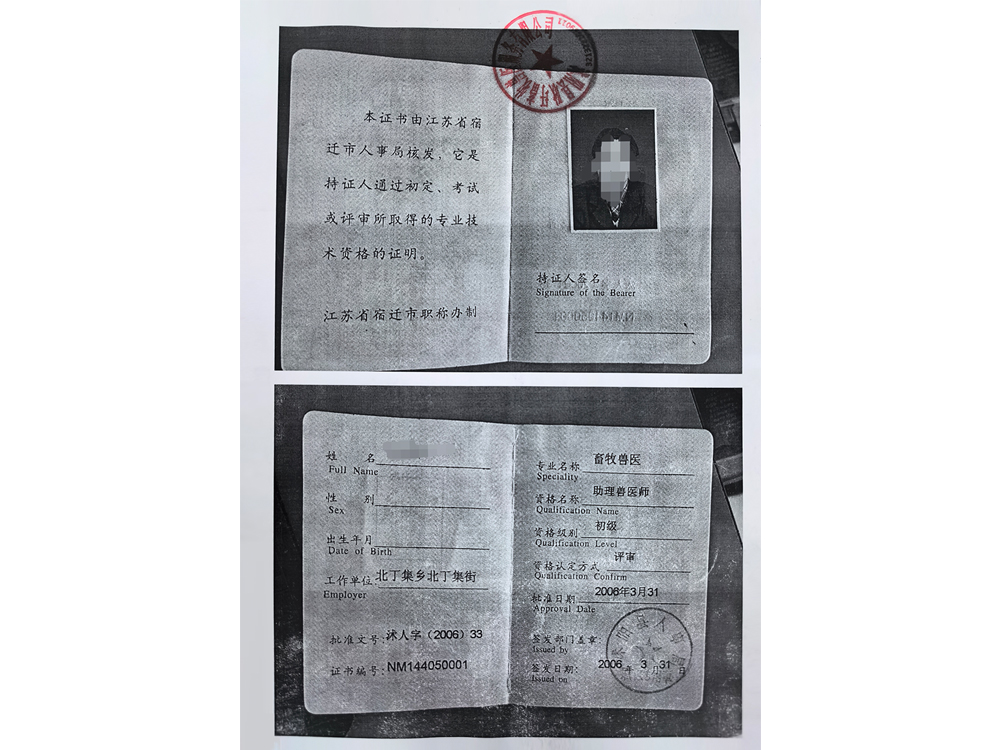 本证书由江苏省宿
迁市人事局核发，它是
持证人通过初定、考试
或评审所取得的专业技
术资格的证明。
江苏省宿迁市职称办制
持证人签名
Signature of the Bearer
姓 名
Full Name
性 别
Sex
出生年月
Date of Birth
工作单位 北丁集乡北丁集街
Employer
批准文号：沭人字（2006）33
证书编号：NM144050001
专业名称 畜牧兽医
Speciality
资格名称 助理兽医师
Qualification Name
资格级别 初级
Qualification Level
资格认定方式 评审
Qualification Confirm
批准日期 2006年3月31
Approval Date
签发部门盖章：
Issued by
签发日期： 2006 年 3 月 31 日
Issued on